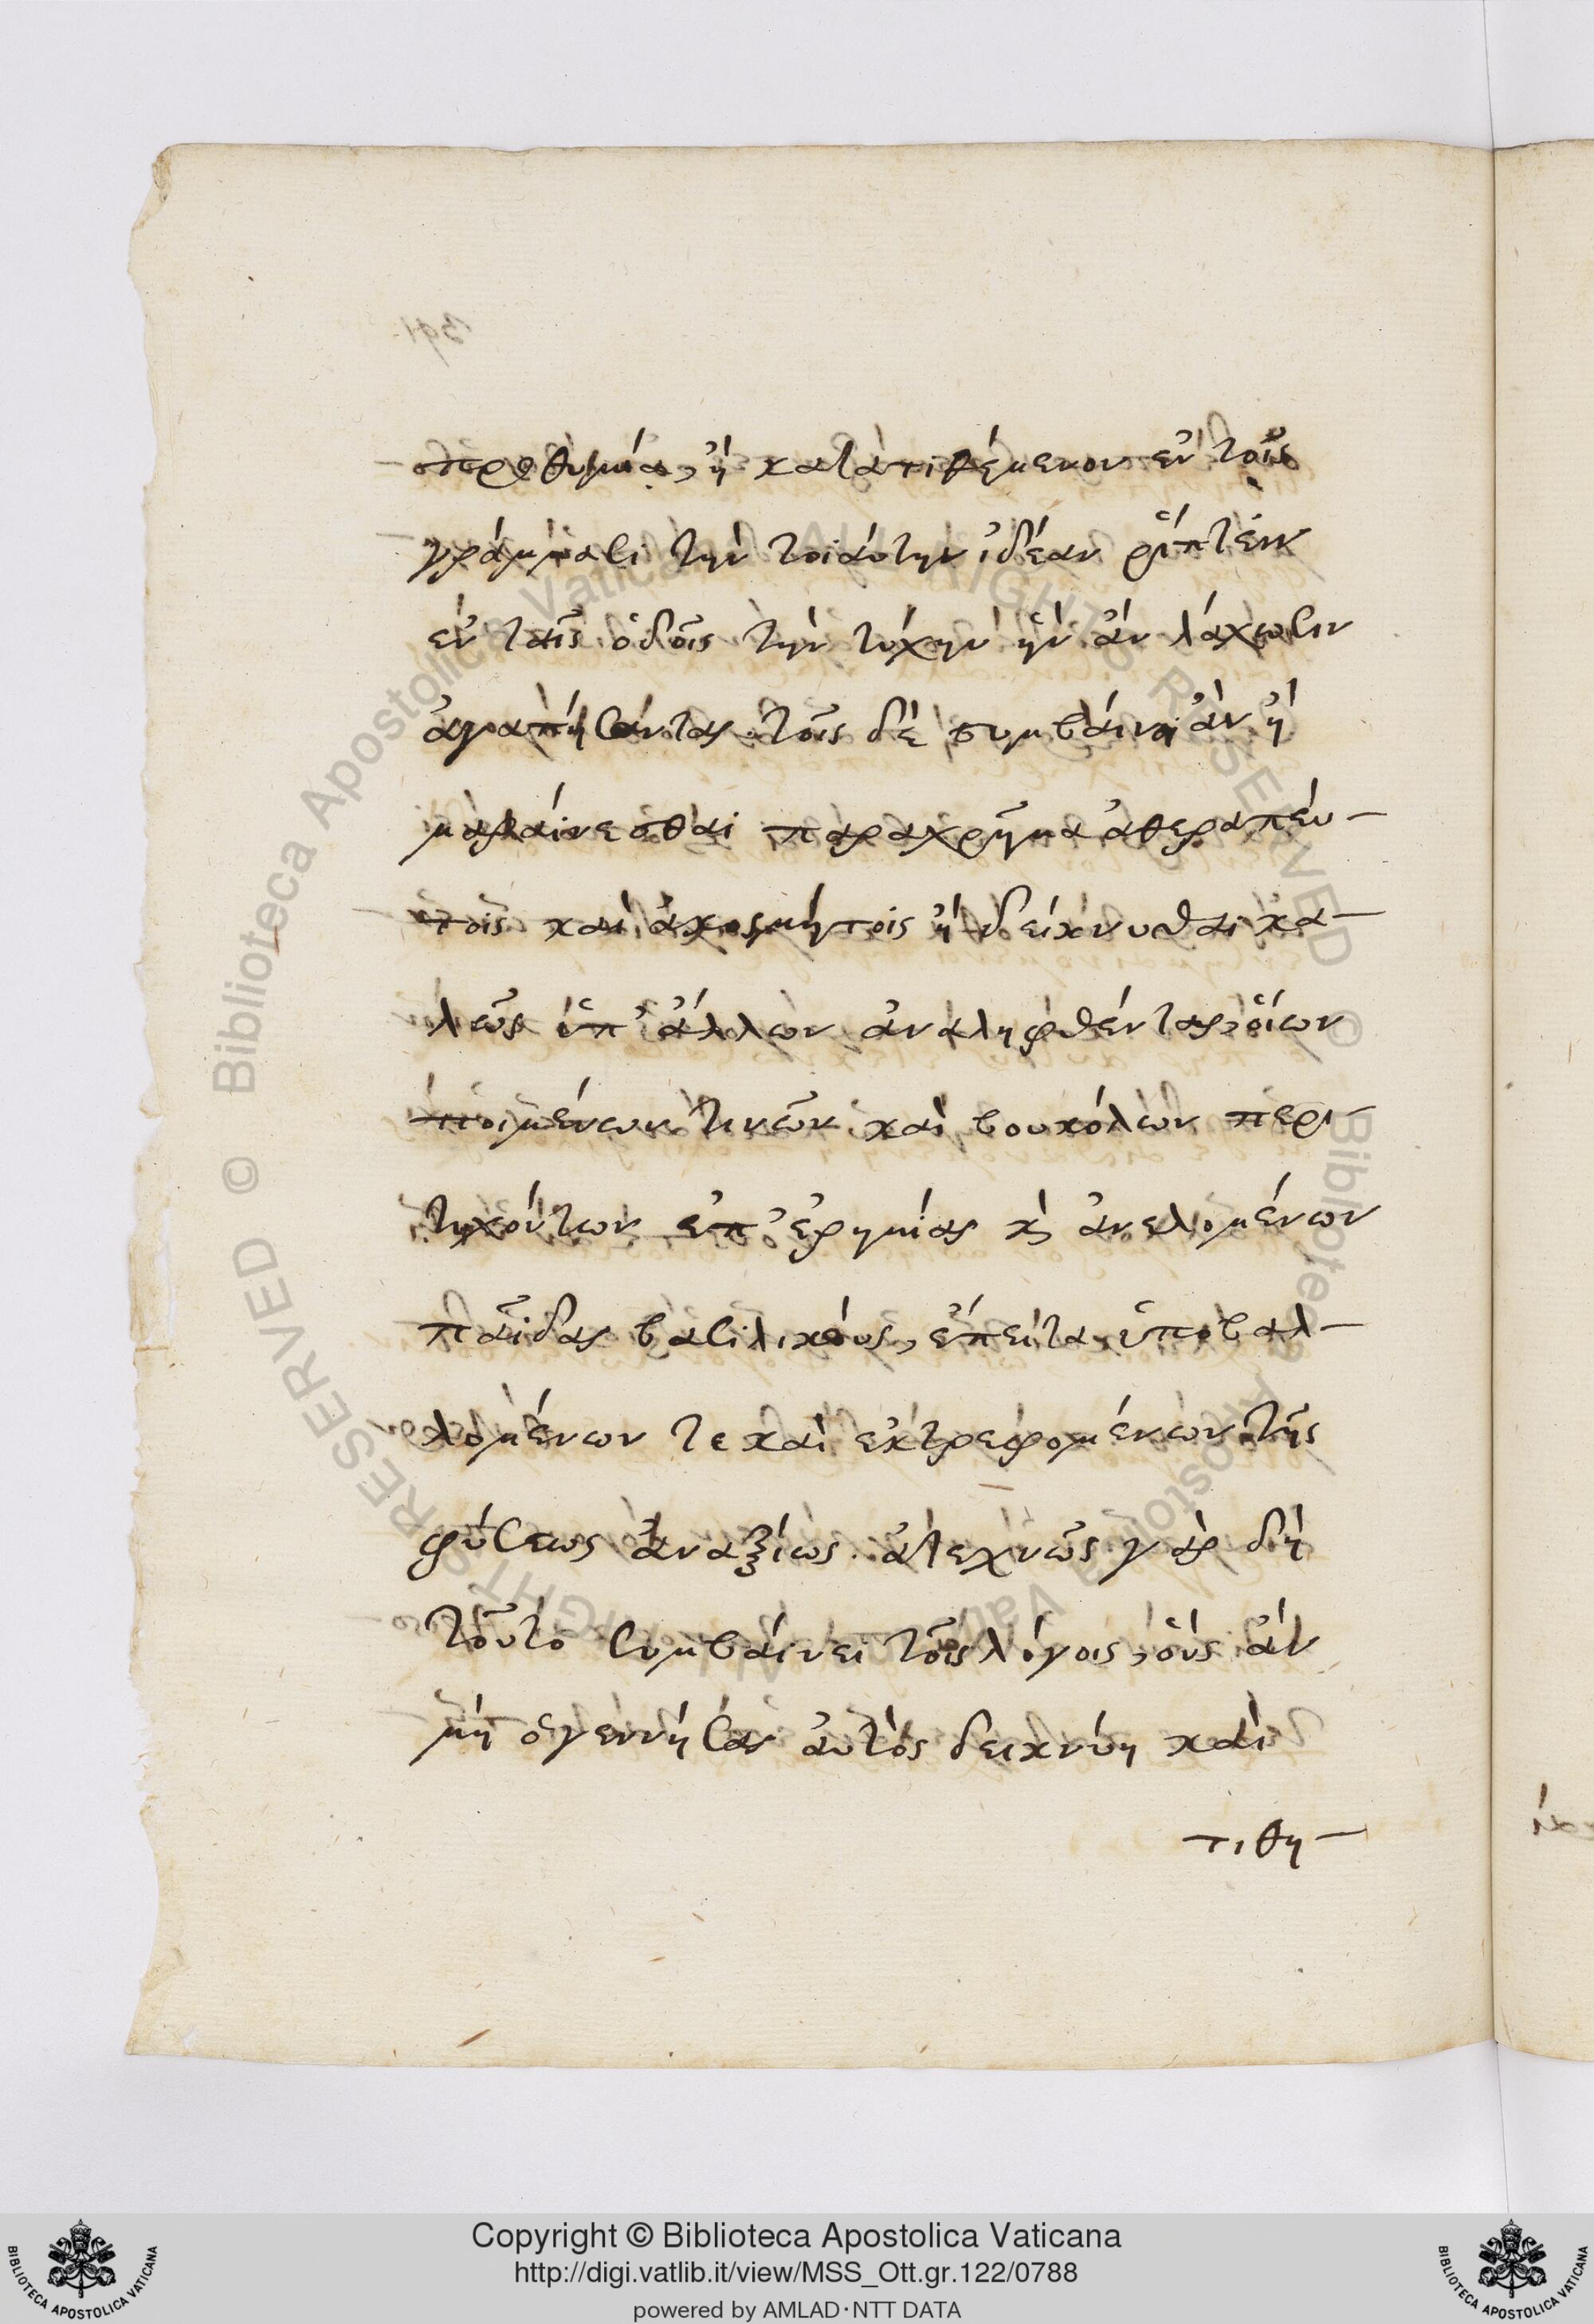 προθυμίας, ἢ κατατιθέμενον ἐν τοῖς
γράμμασι τὴν τοιαύτην ἰδέαν ῥίπτειν
ἐν ταῖς ὁδοῖς τὴν τύχην ἣν ἂν λάχωσιν
ἀγαπήσαντας. τοῖς δὲ συμβαίνοι ἂν ἢ
μαραίνεσθαι παραχρῆμα ἀθεραπεύ-
τοις καὶ ἀκοσμήτοις ἢ δείκνυσθαι κα-
λῶς ὑπ' ἄλλων ἀναληφθέντας, οἵων
ποιμένων τινῶν καὶ βουκόλων περι-
τυχόντων ἐπ' ἐρημίας καὶ ἀνελομένων
παῖδας βασιλικούς, ἔπειτα ὑποβαλ-
λομένων τε καὶ ἐκτρεφομένων τῆς
φύσεως ἀναξίως. ἀτεχνῶς γὰρ δὴ
τοῦτο συμβαίνει τοῖς λόγοις, οὓς ἂν
μὴ ὁ γεννήσας αὐτὸς δεικνύῃ καὶ
τιθη-
Copyright © Biblioteca Apostolica Vaticana
http://digi.vatlib.it/view/MSS_Ott.gr.122/0788
powered by AMLAD·NTT DATA